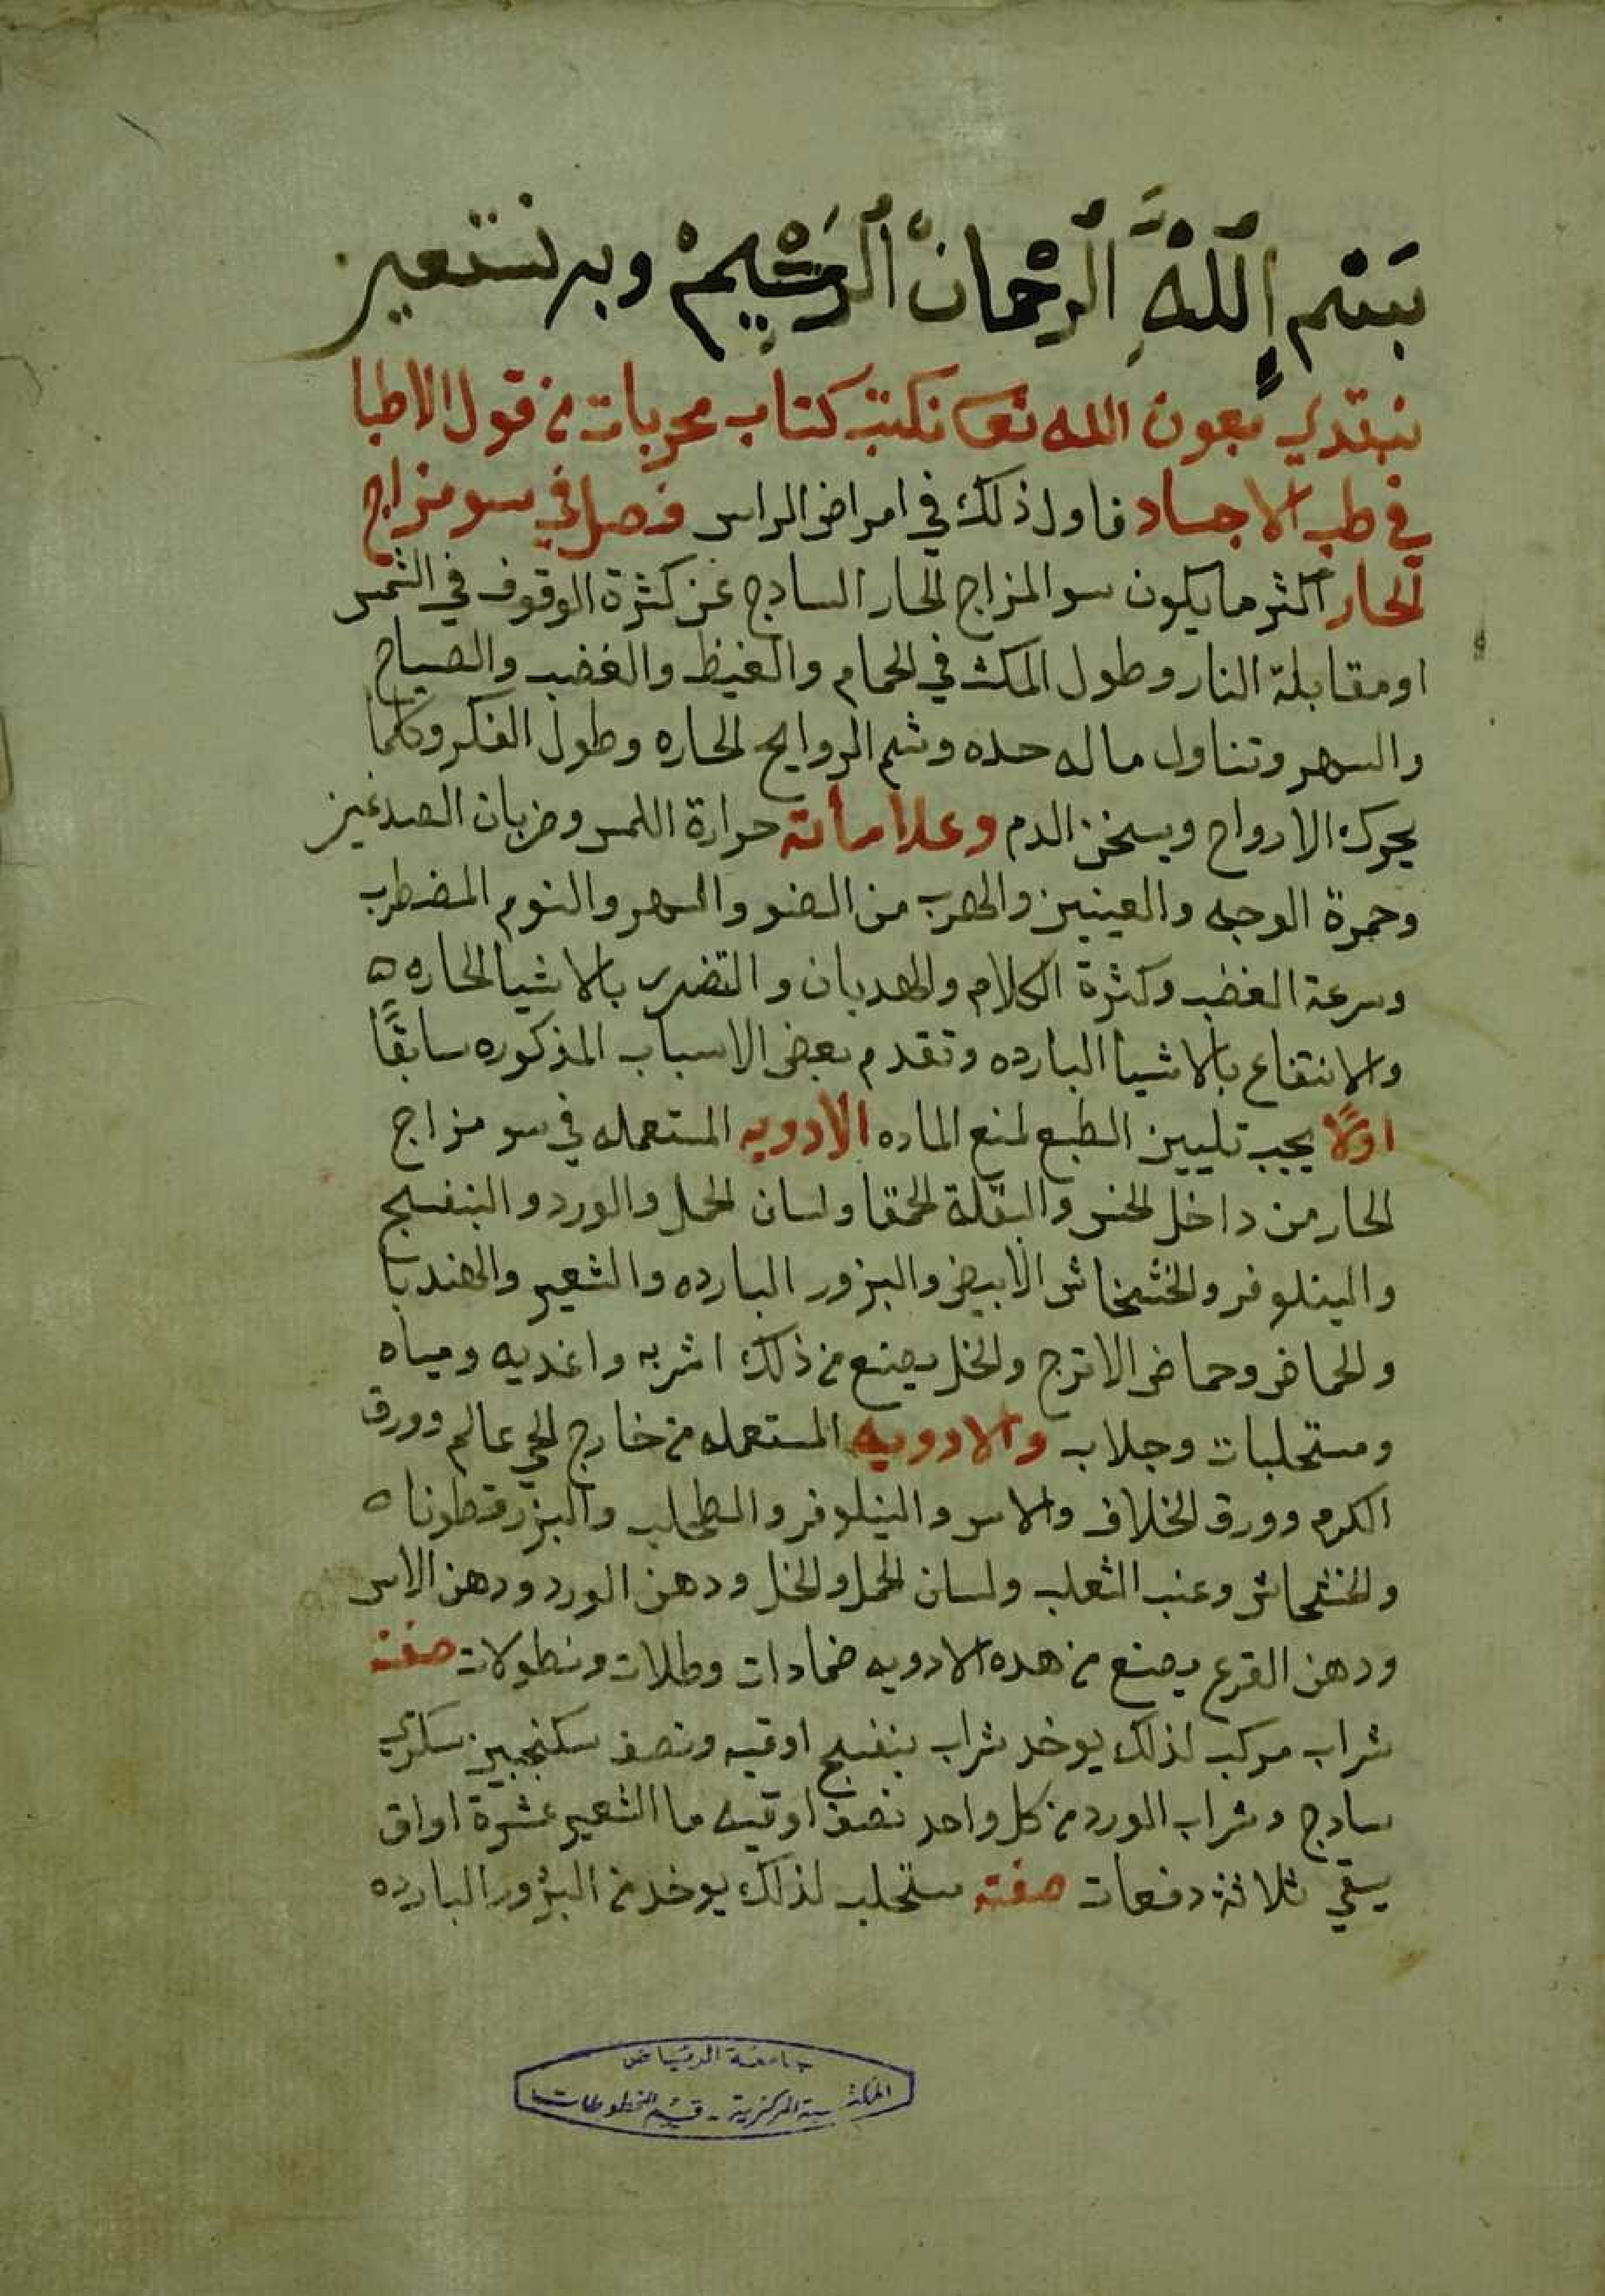 بسم الله الرحمان الرحيم وبه نستعين
نبتدي بعون الله تعا نكتب كتاب مجربات من قول الاطبا
في طب الاجساد فاول ذلك في امراض الراس فصل في سو مزاج
الحار اكثر ما يكون سو المزاج الحار السادج عن كثرة الوقوف في الشمس
او مقابلة النار وطول المكث في الحمام والغيظ والغضب والصياح
والسهر وتناول ماله حده وشم الروايح الحاره وطول الفكر وكلما
يحرك الارواح ويسخن الدم وعلاماته حرارة اللمس وضربان الصدغين
وحمرة الوجه والعينين والهرب من الضو والسهر والنوم المضطرب
وسرعة الغضب وكثرة الكلام والهديان والتضرر بالاشيا الحاره ه
والانتفاع بالاشيا البارده وتقدم بعض الاسباب المذكوره سابقًا
اولًا يجب تليين الطبع لمنع الماده الادويه المستعمله في سو مزاج
الحار من داخل الخس والبقلة الحمقا ولسان الحمل والورد والبنفسج
والينلوفر والخشخاش الابيض والبزور البارده والشعير والهندبا
والحماض وحماض الاترج والخل يصنع من ذلك اشربه واغديه ومياه
ومستحلبات وجلاب والادويه المستعمله من خارج الحي عالم وورق
الكرم وورق الخلاف والاس والينلوفر والطحلب والبزرقطونا ه
والخشخاش وعنب الثعلب ولسان الحمل والخل ودهن الورد ودهن الاس
ودهن القرع يصنع من هده الادويه ضمادات وطلات ونطولات صفة
شراب مركب لذلك يوخد شراب بنفسج اوقيه ونصف سكنجبين سكري
سادج وشراب الورد من كل واحد نصف اوقيه ما الشعير عشرة اواق
يسقي ثلاثة دفعات صفة مستحلب لذلك يوخد من البزور البارده
جامعة الرياض
المكتبة المركزية - قسم المخطوطات